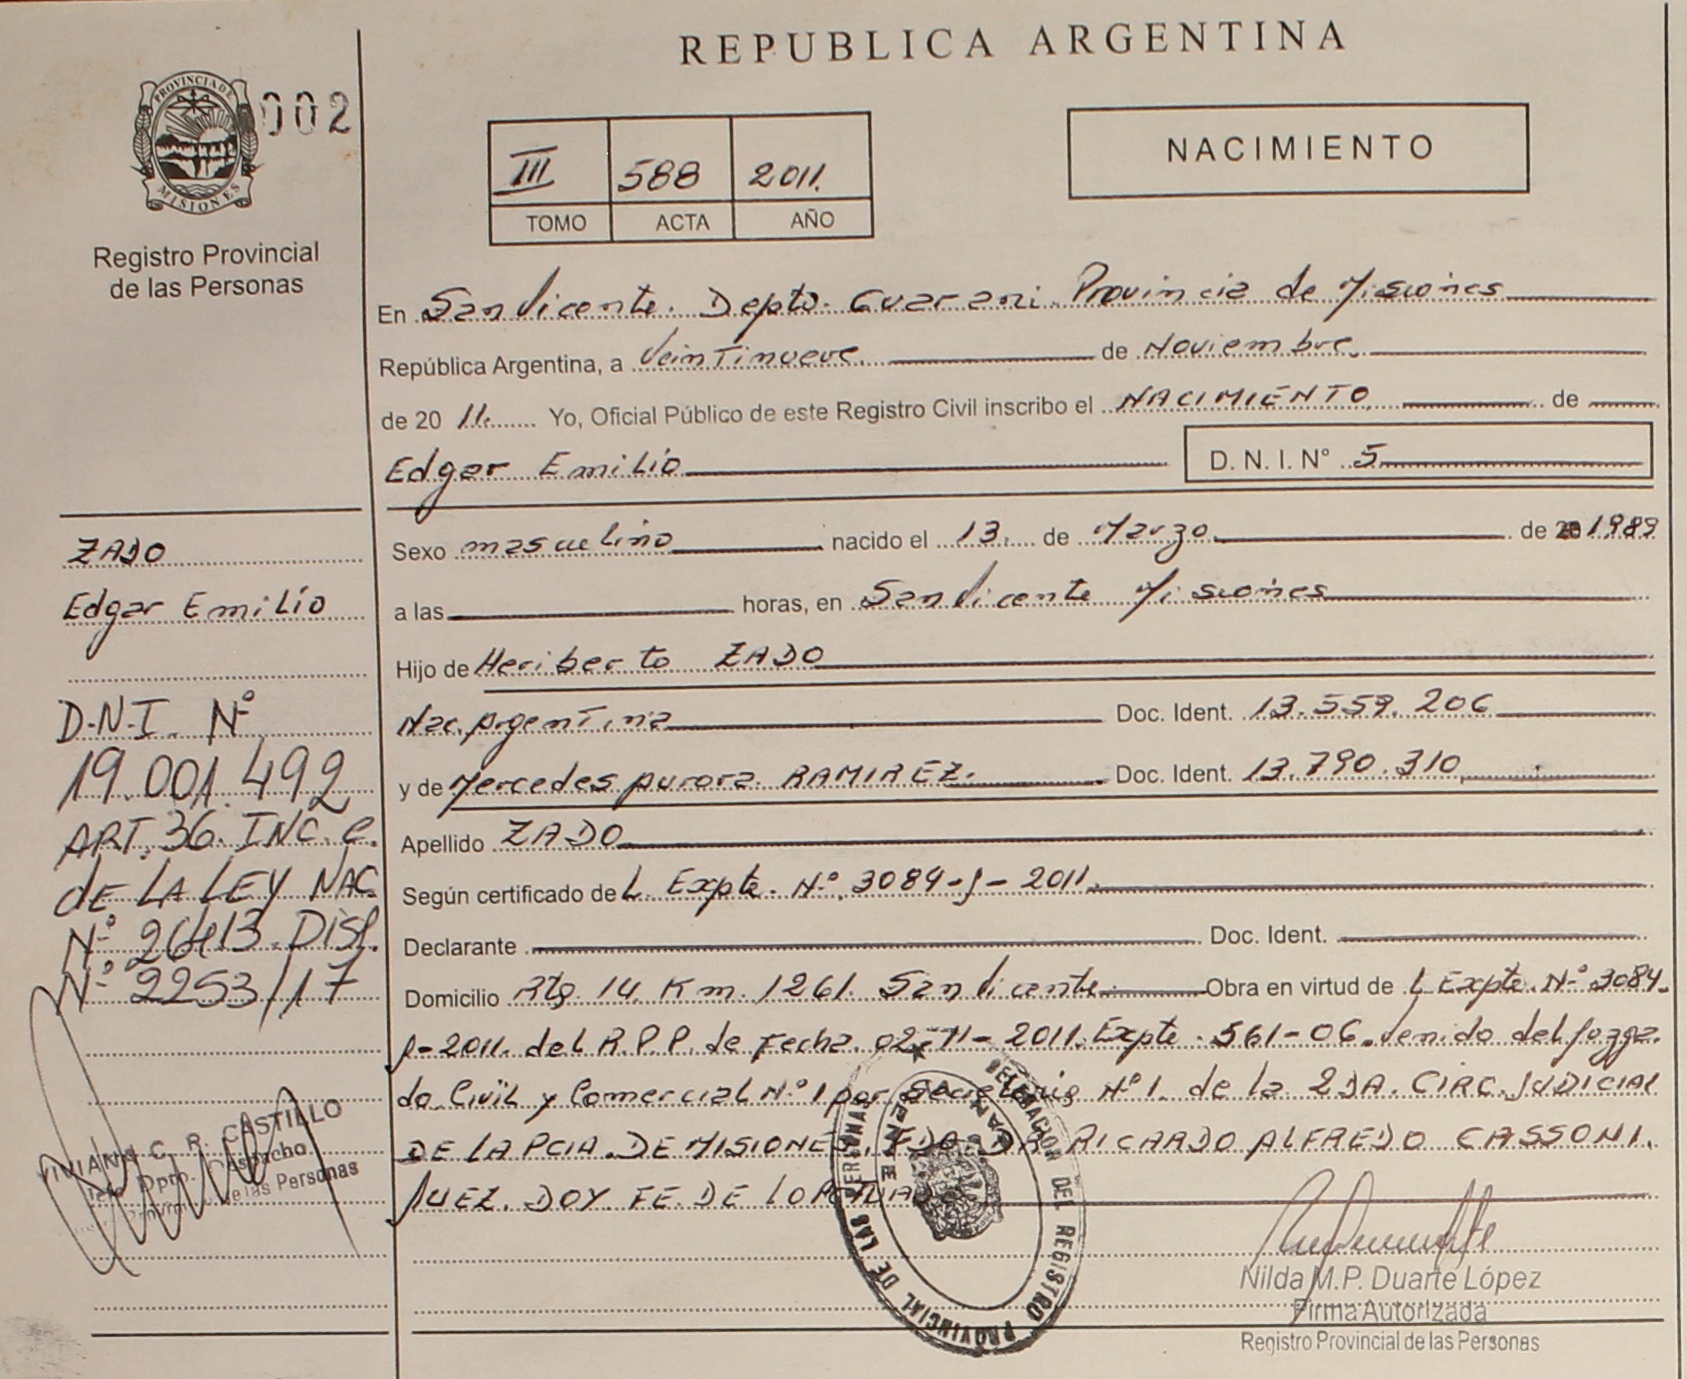 REPUBLICA ARGENTINA
PROVINCIA DE
MISIONES
002
Registro Provincial
de las Personas
III 588 2011.
TOMO ACTA AÑO
NACIMIENTO
En San Vicente. Depto. Guarani. Provincia de Misiones
República Argentina, a Veintinueve. de Noviembre.
de 20 11. Yo, Oficial Público de este Registro Civil inscribo el NACIMIENTO de
Edgar Emilio D. N. I. N° S
Sexo masculino nacido el 13. de Marzo de 1989
a las horas, en San Vicente Misiones
Hijo de Heriberto ZADO
Nac. Argentina Doc. Ident. 13.559.206
y de Mercedes Aurora. RAMIREZ. Doc. Ident. 13.790.310
Apellido ZADO
Según certificado de L. Expte. Nº 3084-J-2011.
Declarante Doc. Ident.
Domicilio Rta. 14 Km. 1261. San Vicente Obra en virtud de L Expte. Nº 3084
J-2011. del R.P.P. de Fecha. 02-11-2011. Expte. 561-06. Venido del Juzga
do Civil y Comercial Nº 1 por Secretaria Nº 1. de la 2DA. CIRC. JUDICIAL
DE LA PCIA. DE MISIONES. FDO. DR RICARDO ALFREDO CASSONI.
JUEZ. DOY. FE. DE LO ACTUADO
ZADO
Edgar Emilio
D.N.I. Nº
19.001.492
ART. 36. INC. C.
dE LA LEY NAC.
Nº 26413. DISP.
Nº 2253/17
VIVIANA C. R. CASTILLO
Dpto. Despacho
de las Personas
DELEGACION DEL REGISTRO PROVINCIAL DE LAS PERSONAS
Nilda M.P. Duarte López
Firma Autorizada
Registro Provincial de las Personas